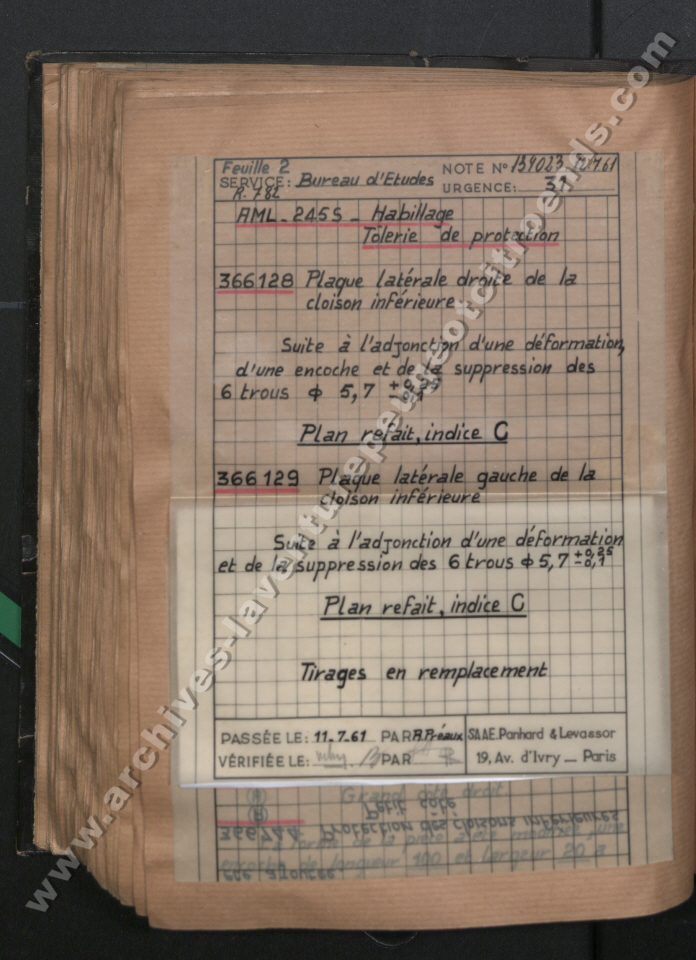 Feuille 2
SERVICE: Bureau d'Etudes
NOTE N° 139023
URGENCE: 31
R. 782
AML - 245S - Habillage
Tôlerie de protection
366128 Plaque latérale droite de la
cloison inférieure
Suite à l'adjonction d'une déformation,
d'une encoche et de la suppression des
6 trous ϕ 5,7
Plan refait, indice C
366129 Plaque latérale gauche de la
cloison inférieure
Suite à l'adjonction d'une déformation
et de la suppression des 6 trous ϕ 5,7 +0,25 -0,1
Plan refait, indice C
Tirages en remplacement
PASSÉE LE: 11.7.61 PAR R.Préaux
VÉRIFIÉE LE: PAR
SAAE. Panhard & Levassor
19, Av. d'Ivry _ Paris
Grand côté droit
Petit côté
366744 Protection des cloisons inférieures
encoche de longueur 100 et largeur 20 a
été ajoutée.
www.archives-laventurepeugeotcitroends.com